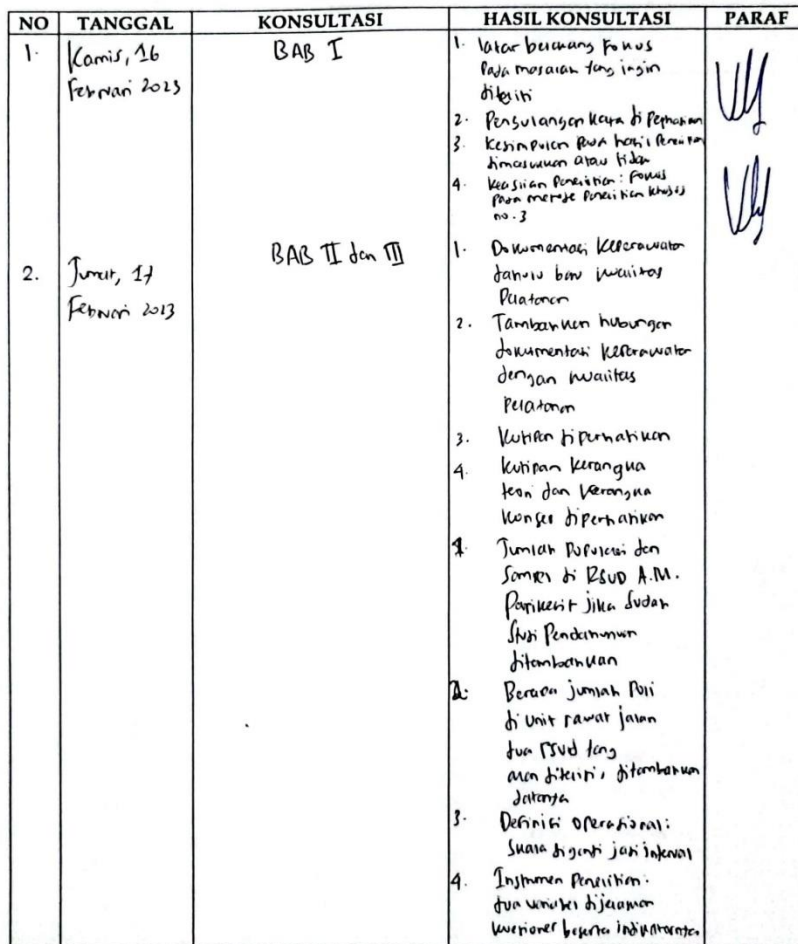 NO TANGGAL KONSULTASI HASIL KONSULTASI PARAF
1. Kamis, 16
Februari 2023
BAB I
1. latar belakang Fokus
Pada masalah yang ingin
diteliti
2. Pengulangan kata di Perhatikan
3. Kesimpulan Pada hasil Penelitian
dimasukkan atau tidak
4. Keaslian Penelitian: Fokus
Pada metode Penelitian khusus
no. 3
2. Jumat, 17
Februari 2023
BAB II dan III
1. Dokumentasi Keperawatan
dahulu baru kualitas
Pelayanan
2. Tambahkan hubungan
dokumentasi Keperawatan
dengan kualitas
Pelayanan
3. Kutipan diperhatikan
4. Kutipan kerangka
teori dan kerangka
konsep diperhatikan
1. Jumlah Populasi dan
Sampel di RSUD A.M.
Parikesit jika sudah
Studi Pendahuluan
ditambahkan
2. Berapa jumlah Poli
di unit rawat jalan
dua RSUD yang
akan diteliti, ditambahkan
datanya
3. Definisi Operasional:
Skala diganti jadi interval
4. Instrumen Penelitian:
dua variabel dijelaskan
kuesioner beserta indikatornya